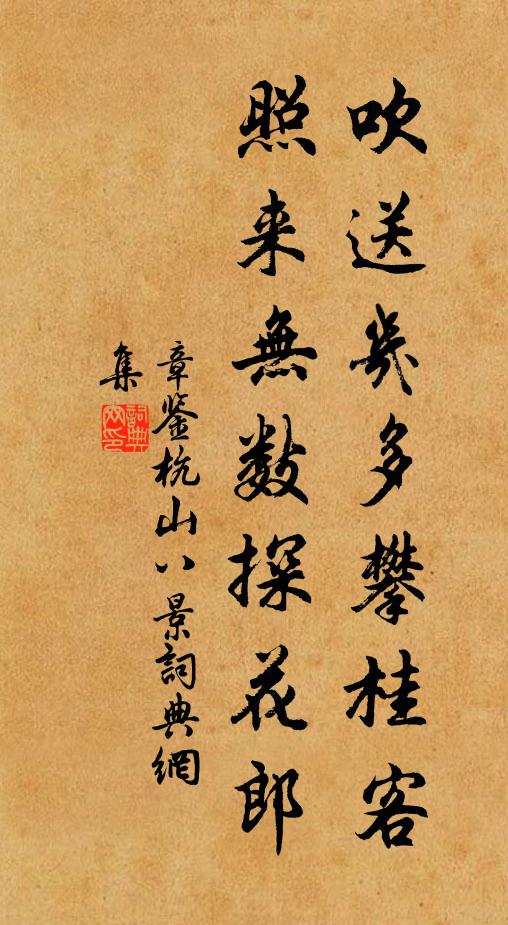 吹送幾多攀桂客
照来無数探花郎
章鉴杭山八景詞典網
集
詞典網印